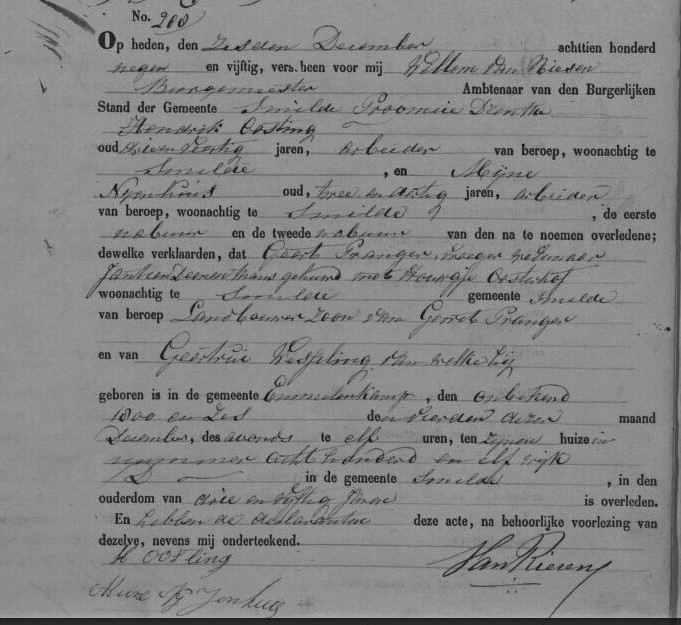 No. 208
Op heden, den Zesden December achttien honderd
negen en vijftig, verscheen voor mij Willem van Riesen
Burgemeester Ambtenaar van den Burgerlijken
Stand der Gemeente Smilde Provincie Drenthe
Hendrik Oosting
oud drie en veertig jaren, arbeider van beroep, woonachtig te
Smilde , en Meine
Nijenhuis oud, twee en dertig jaren, arbeider
van beroep, woonachtig te Smilde , de eerste
nabuur en de tweede nabuur van den na te noemen overledene;
dewelke verklaarden, dat Geert Pranger, vroeger weduwnaar
Jantien thans gehuwd met Oosterhof
woonachtig te Smilde gemeente Smilde
van beroep Landbouwer zoon van Gerrit Pranger
en van Geertrui Wesseling van welke hij
geboren is in de gemeente Emmelenkamp , den onbekend
1800 en Zes den vierden dezer maand
December, des avonds te elf uren, ten zijnen huize in
nummer acht honderd en elf wijk
D in de gemeente Smilde , in den
ouderdom van drie en vijftig Jaren is overleden.
En hebben de declaranten deze acte, na behoorlijke voorlezing van
dezelve, nevens mij onderteekend.
H Oosting VanRiesen
Meine Nijenhuis